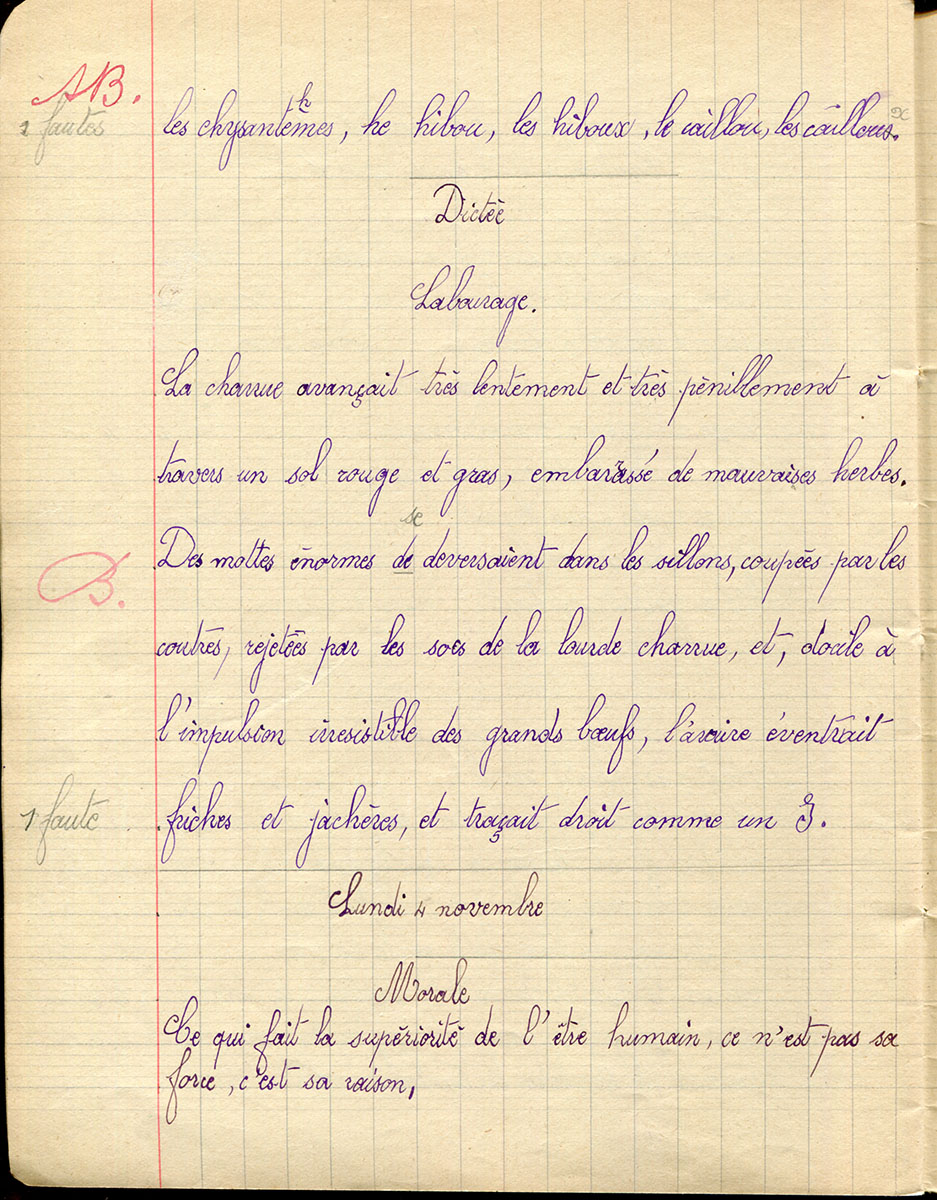 AB.
2 fautes
h
les chysantèmes, he hibou, les hiboux, le caillou, les caillous. x
Dictée
Labourage.
La charrue avançait très lentement et très pénillement à
travers un sol rouge et gras, embarassé de mauvaises herbes.
se
Des mottes énormes de deversaient dans les sillons, coupées par les
B.
coutres, rejetées par les socs de la lourde charrue, et, docile à
l'impulsion irresistible des grands bœufs, l'araire éventrait
1 faute
friches et jachères, et traçait droit comme un I.
Lundi 4 novembre
Morale
Ce qui fait la supériorité de l'être humain, ce n'est pas sa
force, c'est sa raison,